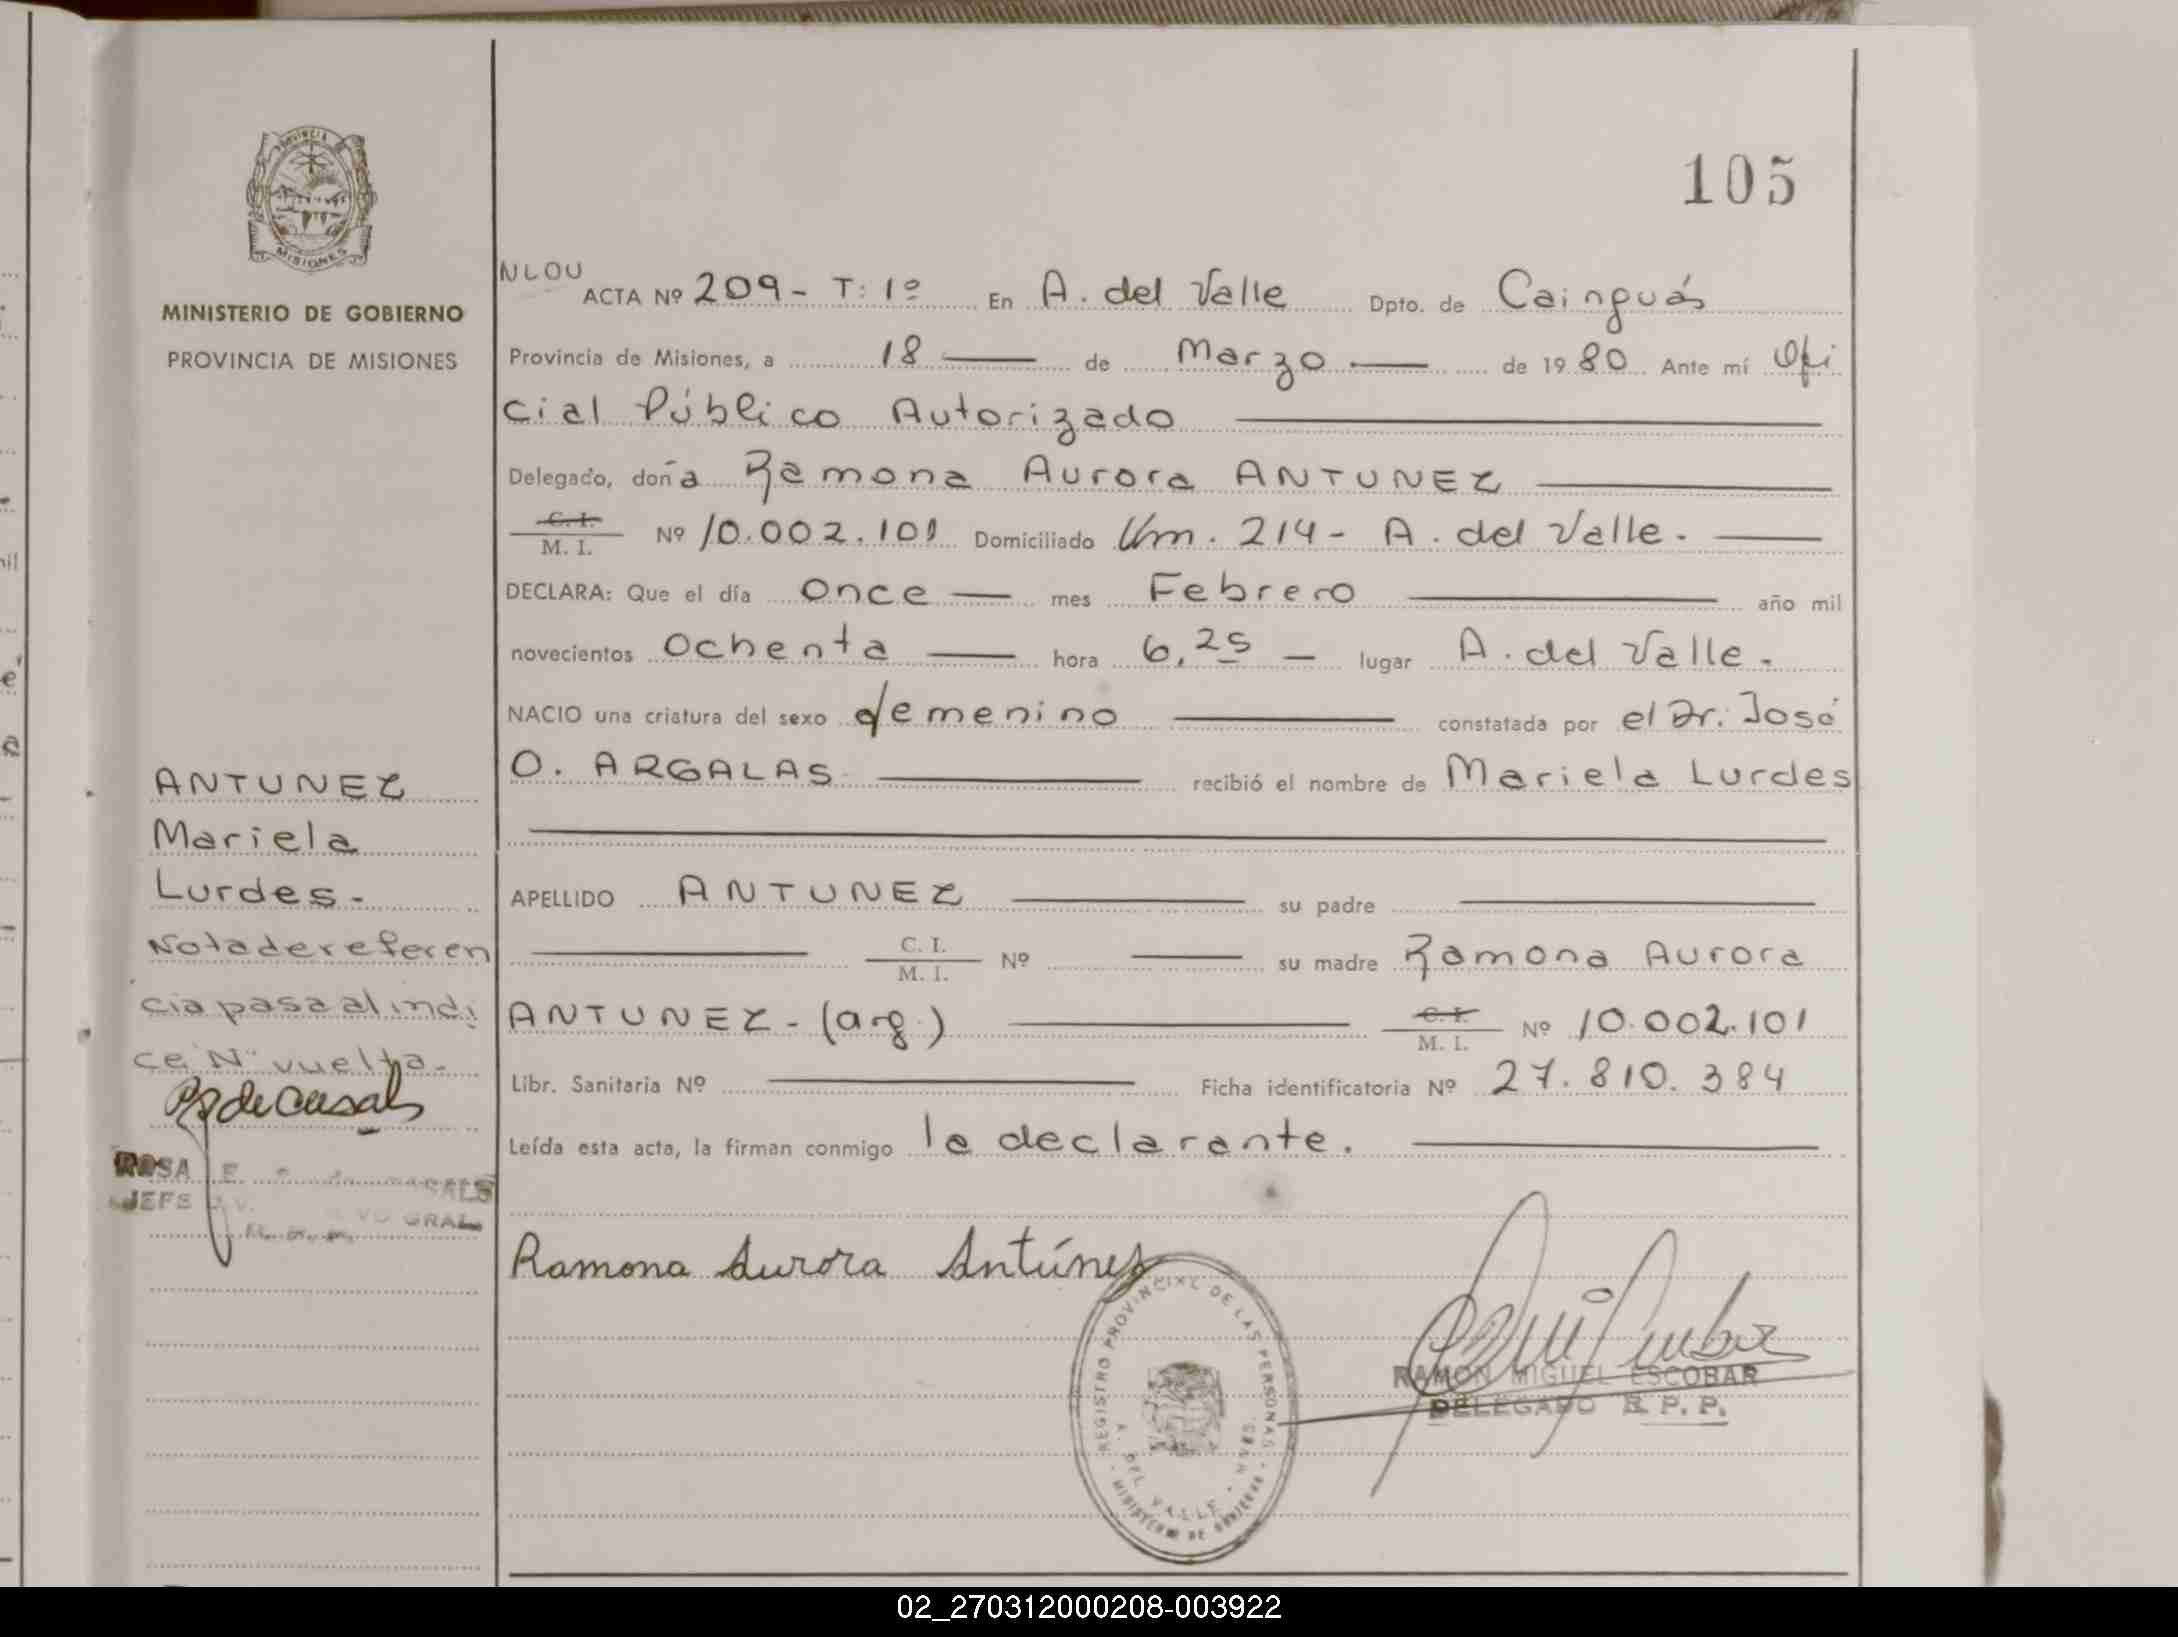 105
PROVINCIA
MISIONES
MINISTERIO DE GOBIERNO
PROVINCIA DE MISIONES
NLOU
ACTA Nº 209 - T: 1º En A. del Valle Dpto. de Cainguás
Provincia de Misiones, a 18 — de Marzo — de 1980 Ante mí Ofi
cial Público Autorizado —
Delegado, doña Ramona Aurora ANTUNEZ —
C. I. / M. I. Nº 10.002.101 Domiciliado Km. 214 - A. del Valle. —
DECLARA: Que el día Once — mes Febrero — año mil
novecientos Ochenta — hora 6,25 — lugar A. del Valle.
NACIO una criatura del sexo femenino — constatada por el Dr. José
O. ARGALAS — recibió el nombre de Mariela Lurdes
APELLIDO ANTUNEZ — su padre —
— C. I. / M. I. Nº — su madre Ramona Aurora
ANTUNEZ - (arg.) — C. I. / M. I. Nº 10.002.101
Libr. Sanitaria Nº — Ficha identificatoria Nº 27.810.384
Leída esta acta, la firman conmigo la declarante. —
Ramona Aurora Antúnez
REGISTRO PROVINCIAL DE LAS PERSONAS
A. DEL VALLE - MNES.
MINISTERIO DE GOBIERNO
RAMON MIGUEL ESCOBAR
DELEGADO R. P. P.
ANTUNEZ
Mariela
Lurdes.
Nota de referen
cia pasa al indi
ce Nº vuelta.
ROSA E. CASALS
JEFE GRAL.
02_270312000208-003922